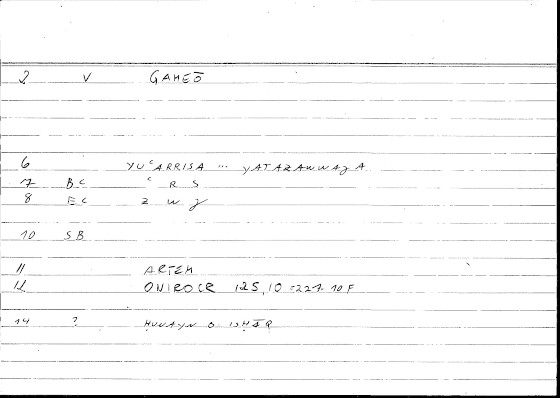 2 V GAMEŌ
6 YUʿARRISA ... YATAZAWWAǧA
7 BC ʿ R S
8 EC z w ǧ
10 SB
11 ARTEM
12 ONIROCR 125,10 = 227.10 F
14 ? ḤUNAYN B ISḤĀQ